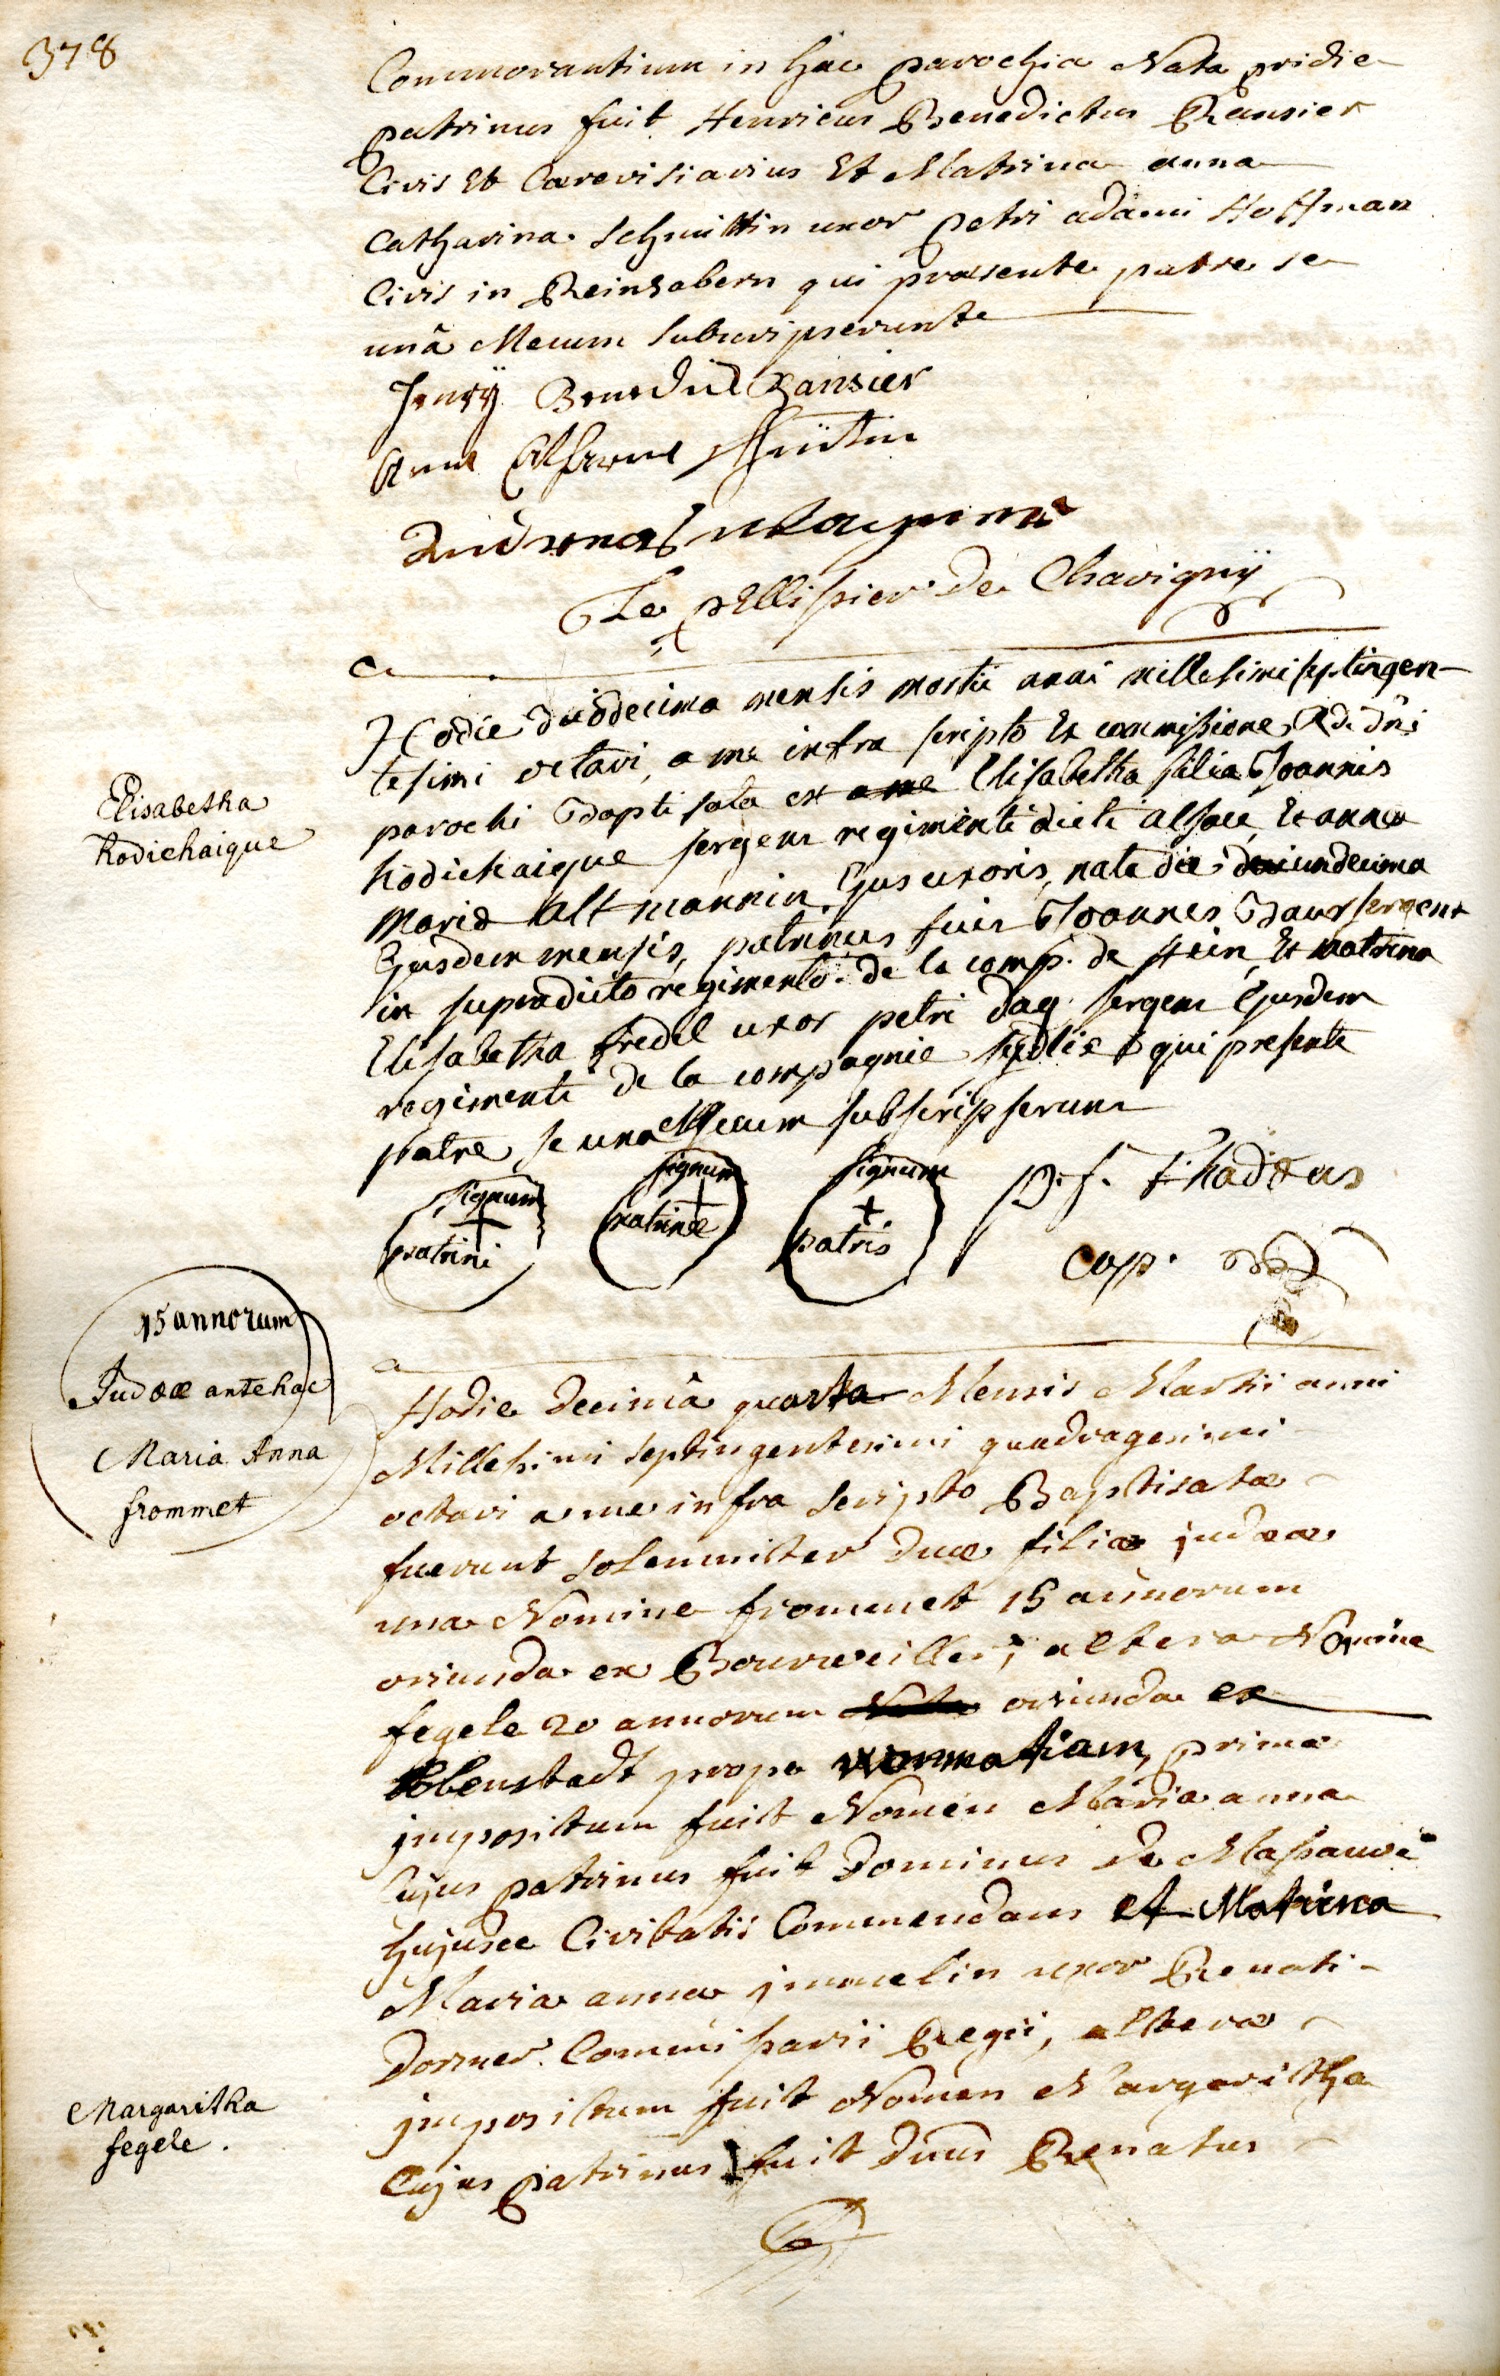 378
Commorantium in hac parochia Nata pridie
patrinus fuit Henricus Benedictus Ransier
Civis Et Cerevisiarius Et Matrina anna
Catharina Schmittin uxor petri adami Hoffman
Civis in Reinzabern qui praesente patre se
unâ Mecum Subscripserunt
Henrÿ Benedict Ransier
Le pellissier de Chavignÿ
Elisabetha
Kodichaique
Hodie duodecima mensis martii anni millesimi septingen-
tesimi octavi, a me infra scripto Ex commissione Rdi dni
parochi Baptisata est a me Elisabetha filia Joannis
Kodichaique sergent regimenti dicti alsace Et anna
Maria Altmannin Ejus uxoris, nata die undecima
Ejusdem mensis, patrinus fuit Joannes Baur sergent
in supradicto regimento de la comp. de stein Et matrina
Elisabetha fredel uxor petri dag sergent Ejusdem
regimenti de la compagnie qui presente
patre se una Mecum subscripserunt
signum
+
patrini
signum
+
matrinae
signum
+
patris
p. f. thadæus
cap.
15 annorum
Judææ antehac
Maria Anna
frommet
Hodie decimâ quarta Mensis Martii anni
Millesimi septingentesimi quadragesimi
octavi a me infra scripto Baptisatæ
fuerunt solemniter duæ filiæ judææ
una Nomine frommet 15 annorum
oriunda ex Bourweiller, altera Nomine
fegele 20 annorum oriunda ex
prope wormatiam, primæ
impositum fuit Nomen Maria anna
Cujus patrinus fuit Dominus de Massauve
hujusce Civitatis Commendans et Matrina
Maria anna immelin uxor Renati
Dormer Commissarii Regii, alteræ
impositum fuit Nomen Margaritha
Cujus patrinus fuit dnus Renatus
Margaritha
fegele.